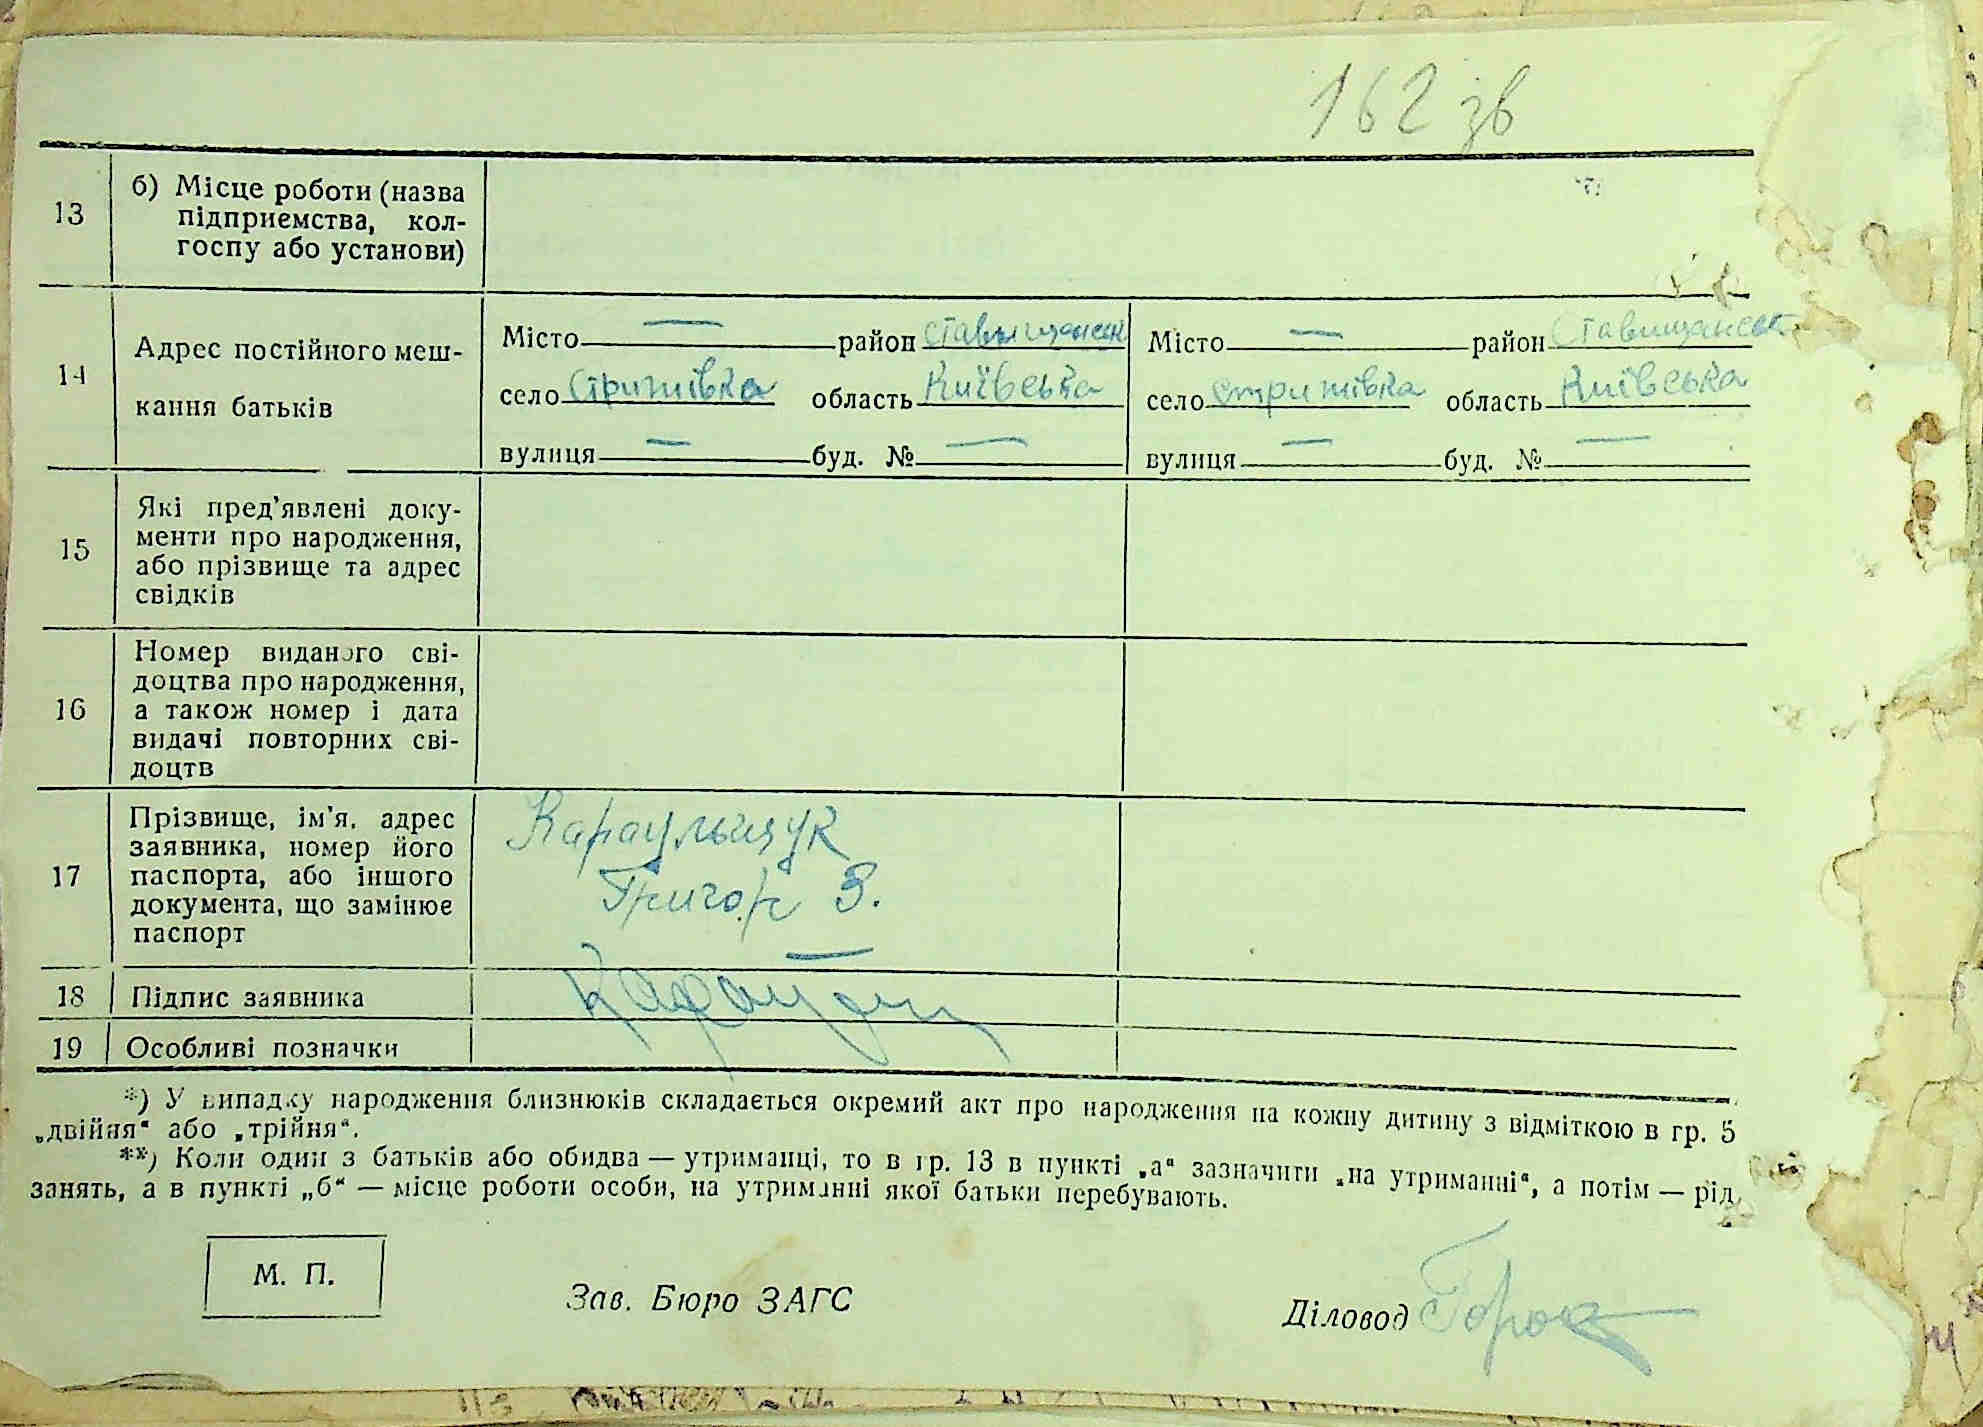 162 зв
13 б) Місце роботи (назва
підприємства, кол-
госпу або установи)
14 Адрес постійного меш-
кання батьків
Місто — район Ставищанськ
село Стрижівка область Київська
вулиця — буд. № —
Місто — район Ставищанськ
село Стрижівка область Київська
вулиця — буд. № —
15 Які пред'явлені доку-
менти про народження,
або прізвище та адрес
свідків
16 Номер виданого сві-
доцтва про народження,
а також номер і дата
видачі повторних сві-
доцтв
17 Прізвище, ім'я, адрес
заявника, номер його
паспорта, або іншого
документа, що замінює
паспорт
Караульщук
Григор З.
—
18 Підпис заявника
19 Особливі позначки
*) У випадку народження близнюків складається окремий акт про народження на кожну дитину з відміткою в гр. 5
„двійня“ або „трійня“.
**) Коли один з батьків або обидва — утриманці, то в гр. 13 в пункті „а“ зазначити „на утриманні“, а потім — рід
занять, а в пункті „б“ — місце роботи особи, на утриманні якої батьки перебувають.
М. П.
Зав. Бюро ЗАГС
Діловод